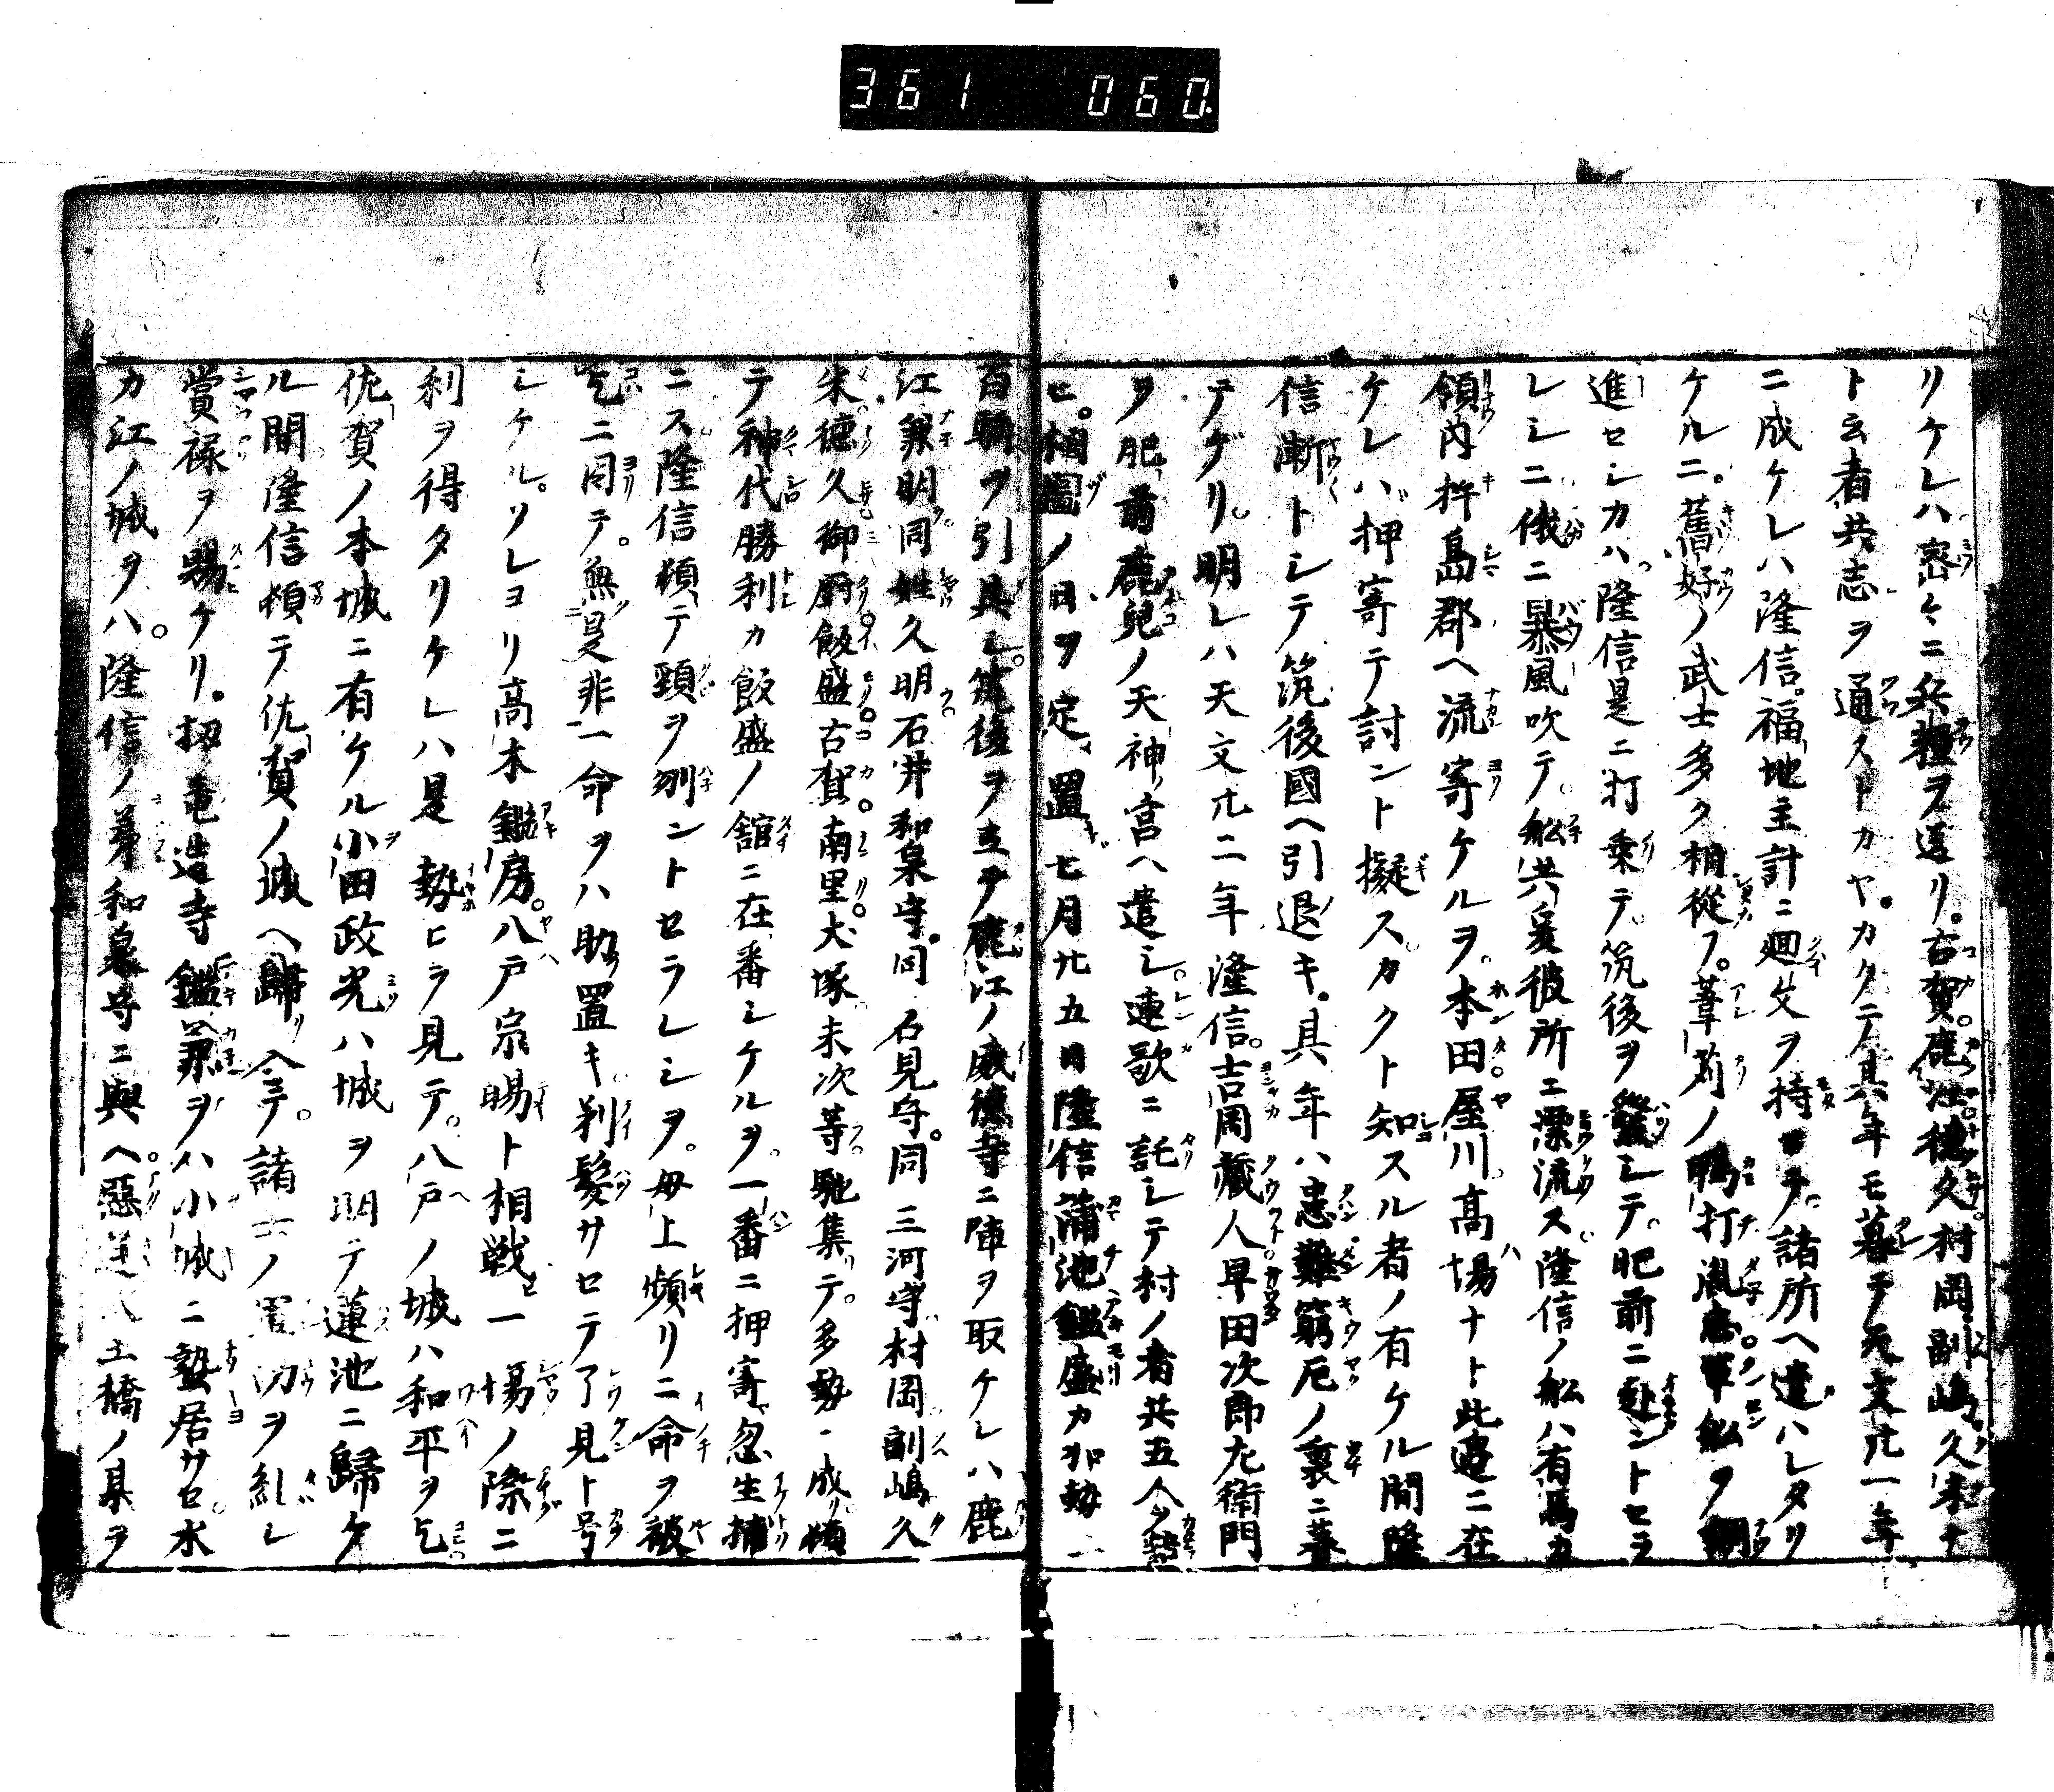 361 060.
リケレハ密々ニ兵粮ヲ送リ。古賀。鹿江。徳久。村岡。副嶋。久米ナ
ト云者共志ヲ通ストカヤ。カクテ其年モ暮テ天文廿一年
ニ成ケレハ隆信。福地主計ニ廻文ヲ持セテ。諸所ヘ遣ハレタリ
ケルニ。舊好ノ武士多ク相從フ。葦刈ノ鴨打胤忠。軍舩ヲ
進セシカハ。隆信是ニ打乗テ。筑後ヲ發シテ。肥前ニ赴ントセラ
レシニ俄ニ暴風吹テ。舩共爰彼所エ漂流ス隆信ノ舩ハ有馬カ
領内杵島郡ヘ流寄ケルヲ。本田屋川髙場ナト此邉ニ在
ケレハ押寄テ討ント擬ス。カクト知スル者ノ有ケル間隆
信漸トシテ筑後國ヘ引退キ。其年ハ患難窮厄ノ裏ニ暮
テゲリ。明レハ天文廿二年隆信。吉岡藏人早田次郎左衛門
ヲ肥前鹿兒ノ天神ノ宮ヘ遣シ。連歌ニ託シテ村ノ者共五人ヲ
ヒ。相圖ノ日ヲ定メ置キ七月廿五日隆信蒲池鑑盛カ加勢二
百騎ヲ引具シ。筑後ヲ立テ鹿江ノ威徳寺ニ陣ヲ取ケレハ鹿
江兼明同姓久明石井和泉守。同石見守。同三河守村岡副嶋久
米徳久御厨飯盛古賀。南里。犬塚末次等馳集テ。多勢ニ成頓
テ神代勝利カ飯盛ノ舘ニ在番シケルヲ。一番ニ押寄忽生捕
ニス隆信頓テ頸ヲ刎ントセラレシヲ。母上頻リニ命ヲ被
乞ニ因テ。無是非一命ヲハ助置キ剃髪サセテ了見ト号
シケル。ソレヨリ髙木鑑房。八戸宗暘ト相戦ヒ一場ノ際ニ
利ヲ得タリケレハ是勢ヒヲ見テ。八戸ノ城ハ和平ヲ乞
佐賀ノ本城ニ有ケル小田政光ハ城ヲ明テ蓮池ニ歸ケ
ル間隆信頓テ佐賀ノ城ヘ歸リ入テ。諸士ノ軍功ヲ糺シ
賞禄ヲ賜ケリ。扨竜造寺鑑兼ヲハ小城ニ蟄居サセ。水
カ江ノ城ヲハ。隆信ノ弟和泉守ニ與ヘ。惡逆人土橋ノ某ヲ